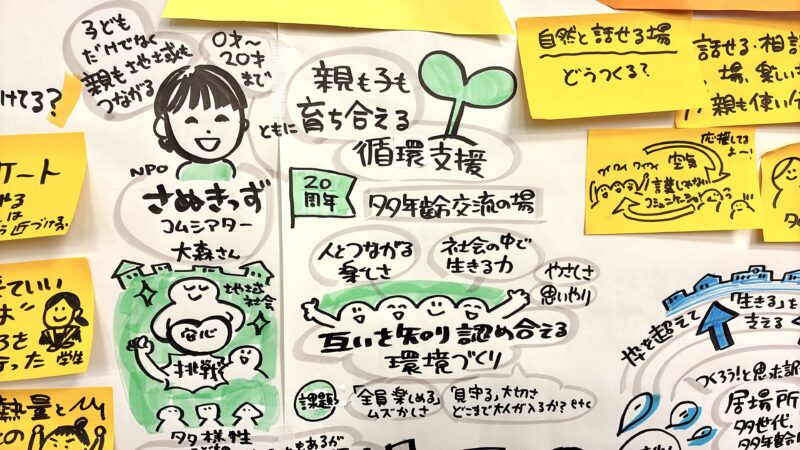 子ども
だけでなく
親も地域も
つながる
0才〜
20才
まで
NPO
さぬきっず
コムシアター
大森さん
地域
社会
安心
挑戦
多様性
親も子も
ともに育ち合える
循環支援
20
周年
多年齢交流の場
人とつながる
楽しさ
社会の中で
生きる力
やさしさ
思いやり
互いを知り認め合える
環境づくり
課題
「全員楽しめる」
ムズかしさ
「見守る」大切さ
どこまで大人が入るか？etc
もあるが
自然と話せる場
どうつくる？
話せる・相談
場、楽しいさ
親も使い
応援してる
よ〜！
ワイワイ
空気
言葉じゃない
コミュニケーション
枠を超えて
「生きる」を
支える
つくろう！と思った訳
居場所
多世代・
多年齢
けてる？
ケート
近づける。
ていい
学生
った
熱量と